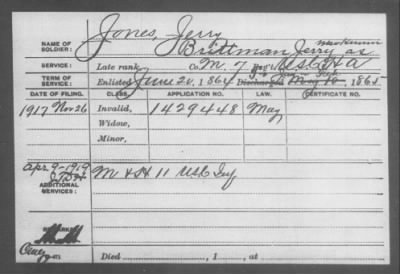 Jones, Jerry
NAME OF SOLDIER: Brittman, Jerry as
SERVICE: Late rank, Co. M, 7 Reg't US C H A
TERM OF SERVICE: Enlisted June 20, 1864 Discharged May 10, 1865
DATE OF FILING. CLASS. APPLICATION NO. LAW. CERTIFICATE NO.
1917 Nov 26 Invalid, 1429448 May
Widow,
Minor,
Apr 9-1919
ADDITIONAL SERVICES: M & H 11 USC Inf
REMARKS:
Died , 1 , at